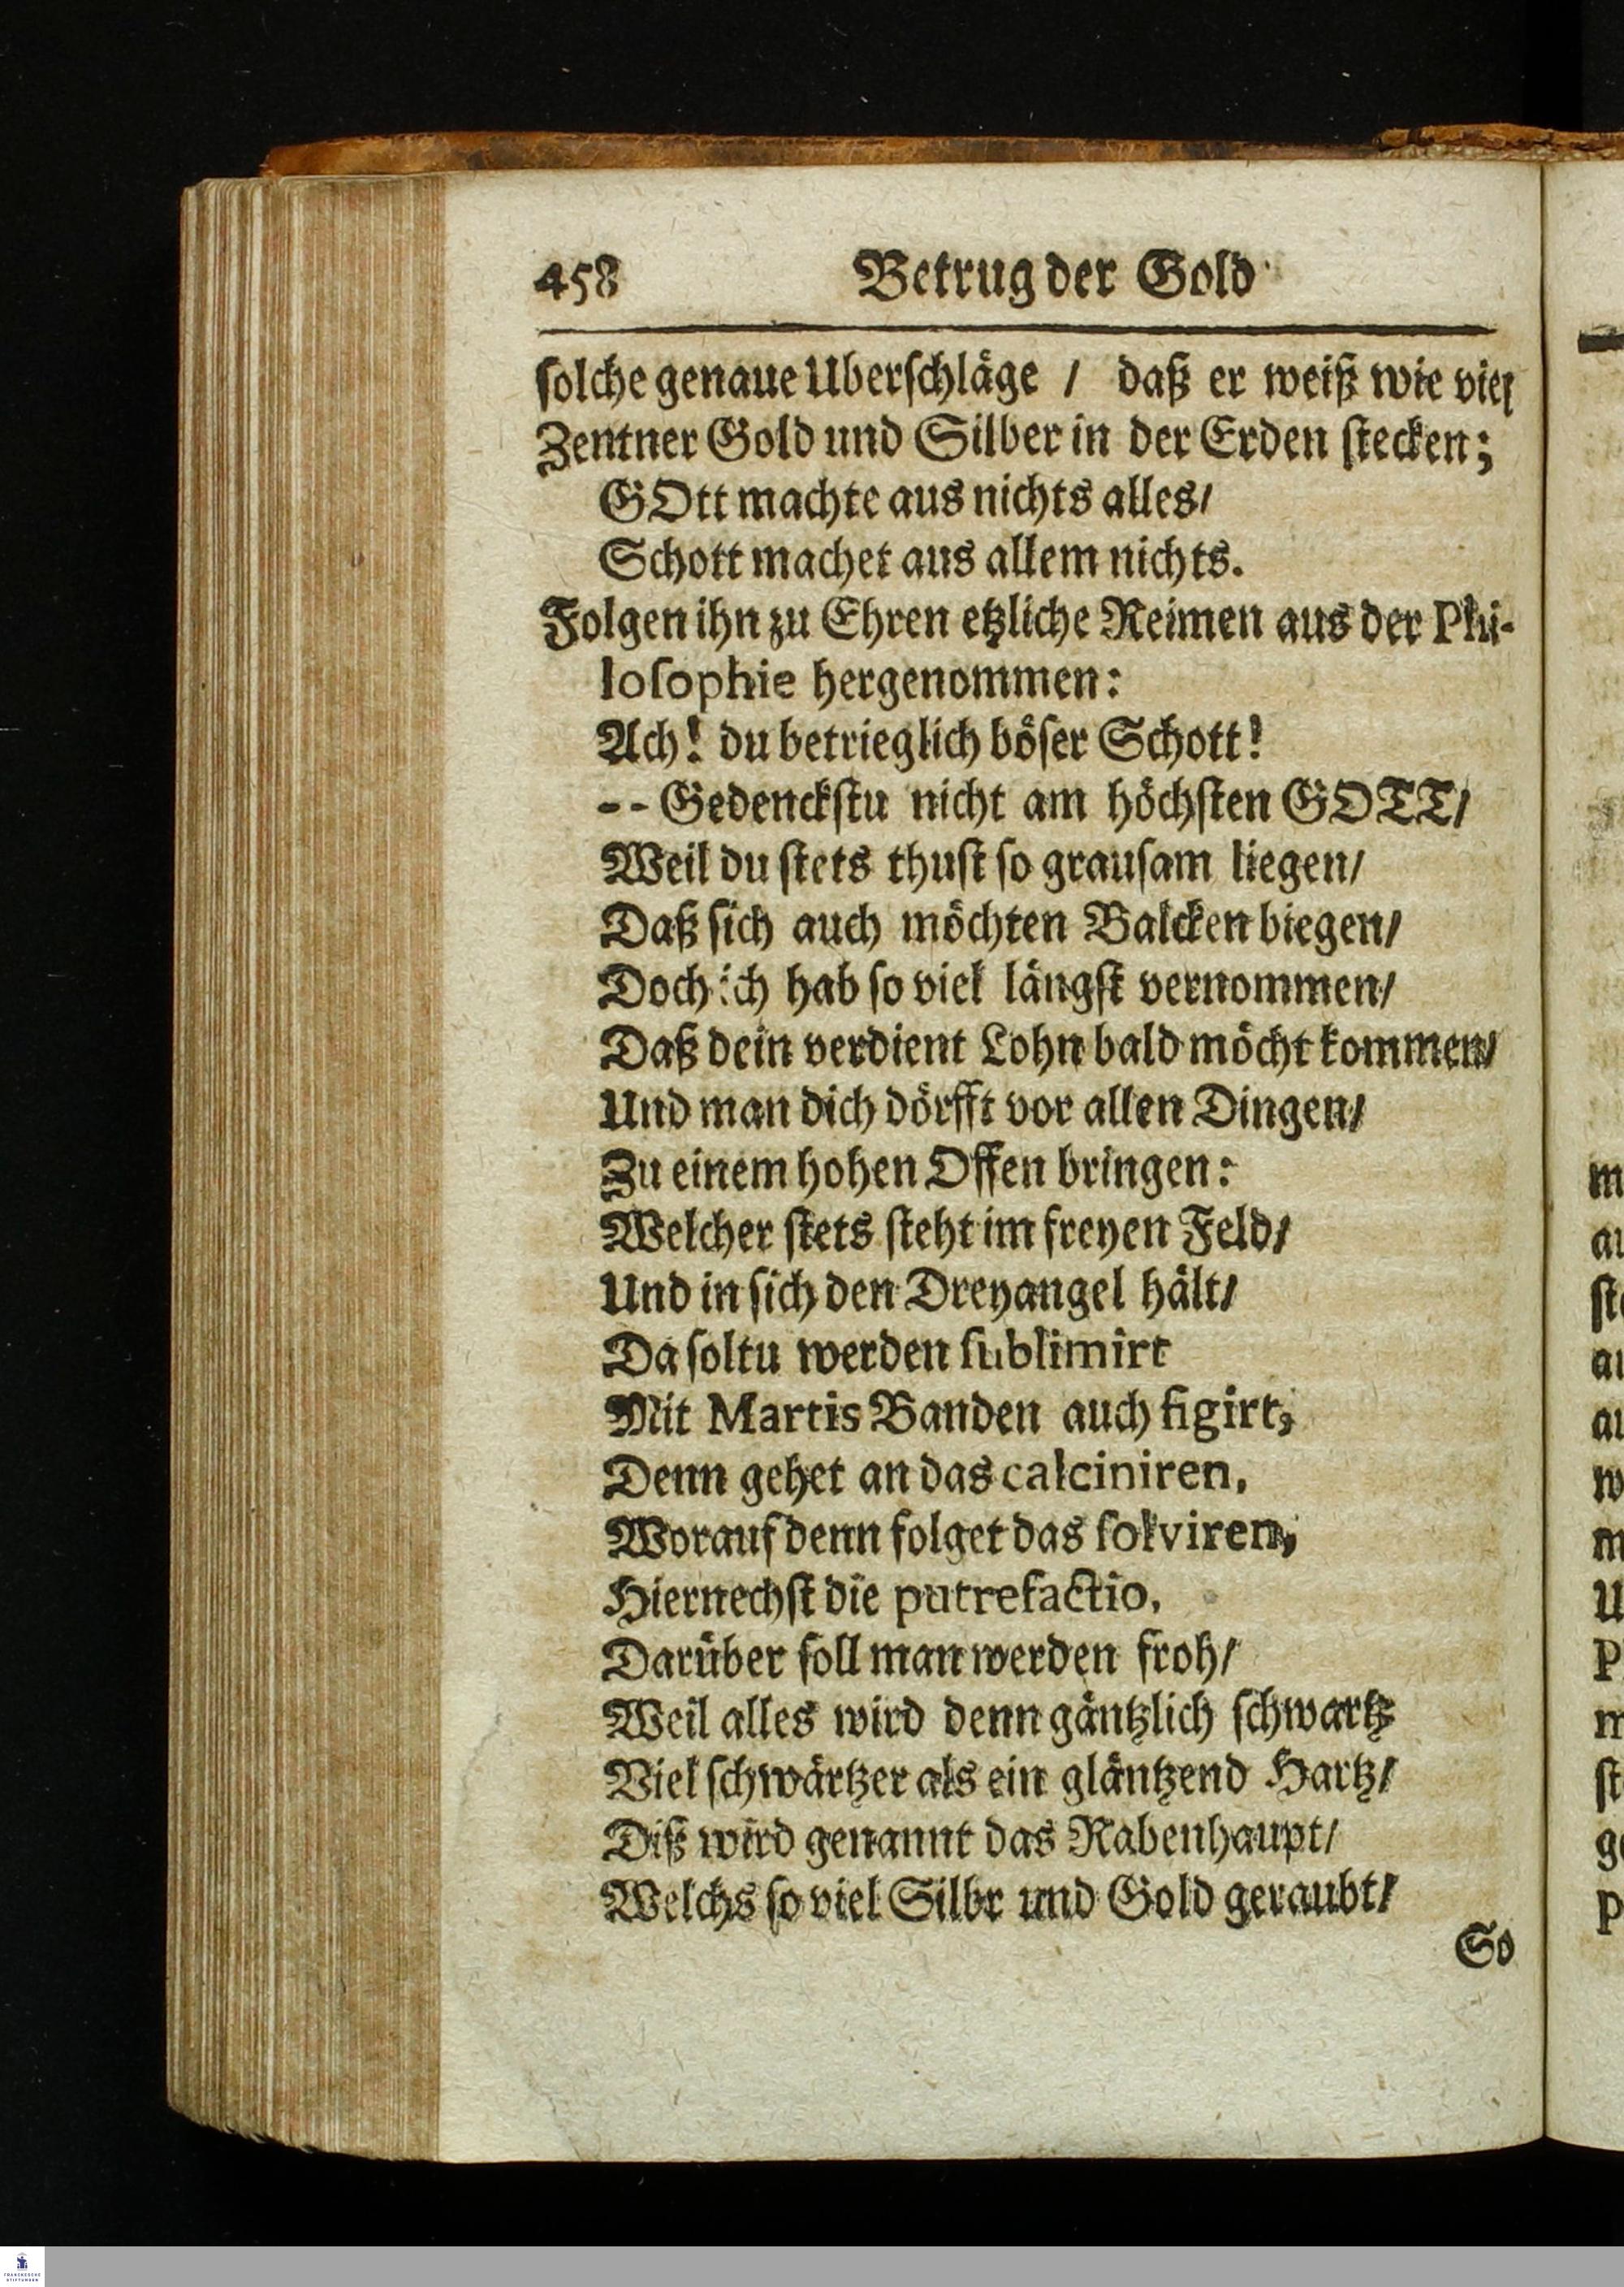 458 Betrug der Gold
ſolche genaue Uberſchlaͤge / daß er weiß wie viel
Zentner Gold und Silber in der Erden ſtecken;
GOtt machte aus nichts alles/
Schott machet aus allem nichts.
Folgen ihn zu Ehren etzliche Reimen aus der Phi-
loſophie hergenommen:
Ach! du betrieglich boͤſer Schott!
-- Gedenckſtu nicht am hoͤchſten GOTT/
Weil du ſtets thuſt ſo grauſam liegen/
Daß ſich auch moͤchten Balcken biegen/
Doch ich hab ſo viel laͤngſt vernommen/
Daß dein verdient Lohn bald moͤcht kommen/
Und man dich doͤrfft vor allen Dingen/
Zu einem hohen Offen bringen:
Welcher ſtets ſteht im freyen Feld/
Und in ſich den Dreyangel haͤlt/
Da ſoltu werden ſublimirt
Mit Martis Banden auch figirt,
Denn gehet an das calciniren,
Worauf denn folget das ſolviren,
Hiernechſt die putrefactio,
Daruͤber ſoll man werden froh/
Weil alles wird denn gaͤntzlich ſchwartz
Viel ſchwaͤrtzer als ein glaͤntzend Hartz/
Diß wird genannt das Rabenhaupt/
Welchs ſo viel Silbr und Gold geraubt/
So
m
au
ſte
au
au
w
m
U
P
m
ſt
ge
p
FRANCKESCHE
STIFTUNGEN